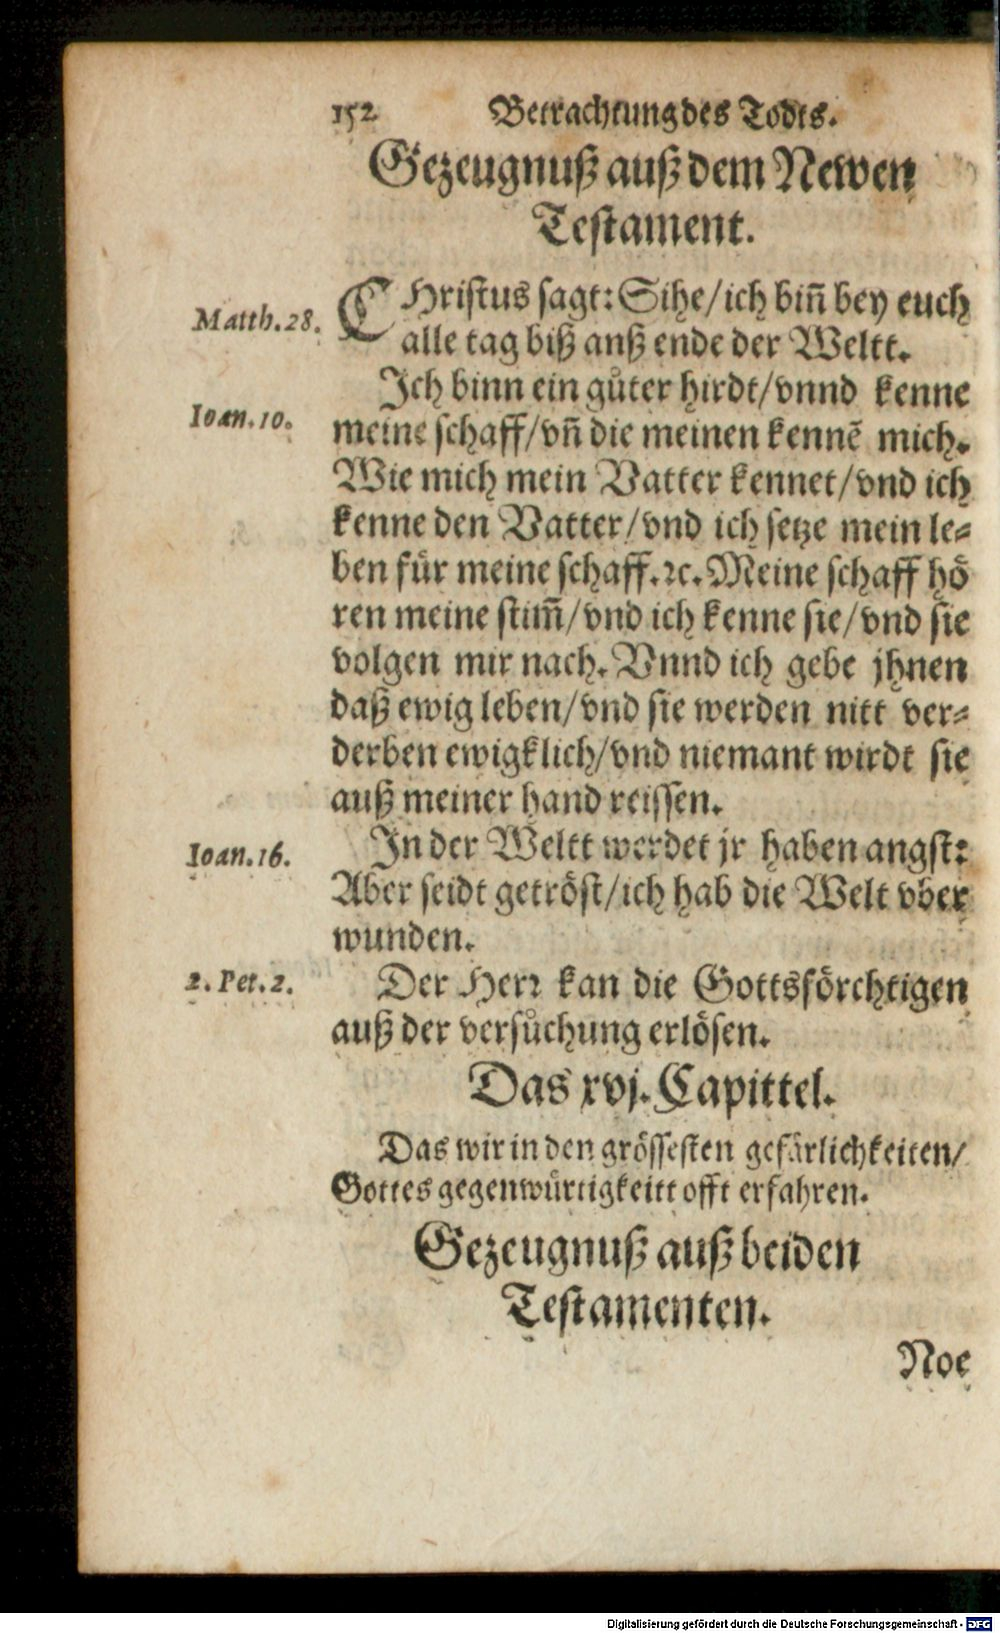 152 Betrachtung des Todts.
Gezeugnuß auß dem Newen
Testament.
Matth. 28. CHristus sagt: Sihe/ich bin̄ bey euch
alle tag biß anß ende der Weltt.
Ich binn ein gůter hirdt/vnnd kenne
Ioan. 10. meine schaff/vn̄ die meinen kennē mich.
Wie mich mein Vatter kennet/vnd ich
kenne den Vatter/vnd ich setze mein le-
ben für meine schaff. ꝛc. Meine schaff hö
ren meine stim̄/vnd ich kenne sie/vnd sie
volgen mir nach. Vnnd ich gebe jhnen
daß ewig leben/vnd sie werden nitt ver-
derben ewigklich/vnd niemant wirdt sie
auß meiner hand reissen.
Ioan. 16. In der Weltt werdet jr haben angst:
Aber seidt getröst/ich hab die Welt vber
wunden.
2. Pet. 2. Der Herr kan die Gottsförchtigen
auß der versůchung erlösen.
Das xvj. Capittel.
Das wir in den grössesten gefärlichkeiten/
Gottes gegenwürtigkeitt offt erfahren.
Gezeugnuß auß beiden
Testamenten.
Noe
Digitalisierung gefördert durch die Deutsche Forschungsgemeinschaft - DFG